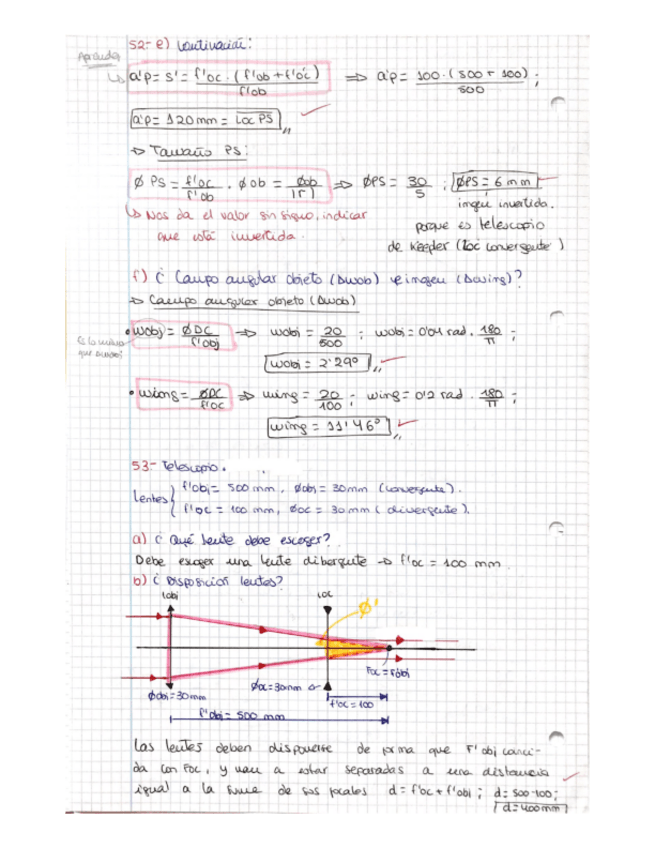 52- e) Continuación:
Aprender
a'p = s' = f'oc · (f'ob + f'oc) / f'ob ⇒ a'p = 100 · (500 + 100) / 500 ;
a'p = 120 mm = Loc PS
→ Tamaño PS:
Ø PS = f'oc / f'ob · Ø ob = Øob / |Γ| ⇒ ØPS = 30 / 5 ; ØPS = 6 mm
↳ Nos da el valor sin signo, indicar
que está invertida.
imgen invertida.
porque es telescopio
de Kepler (Loc convergente)
f) ¿ Campo angular objeto (Δwob) e imgen (Δwimg)?
→ Campo angular objeto (Δwob)
• wobj = ØDC / f'obj ⇒ wobj = 20 / 500 ; wobj = 0'04 rad · 180 / π ;
wobj = 2'29º
• wimg = ØDC / f'oc ⇒ wimg = 20 / 100 ; wimg = 0'2 rad · 180 / π ;
wimg = 11'46º
53- Telescopio.
Lentes { f'obj = 500 mm, Øobj = 30mm (convergente).
f'oc = 100 mm, Øoc = 30 mm (divergente).
a) ¿ Qué lente debe escoger?
Debe escoger una lente dibergente → f'oc = 100 mm.
b) ¿ Disposición lentes?
Lobj
Loc
Ø'
Foc = F'obj
Øobj = 30mm
Øoc = 30mm
f'oc = 100
f'obj = 500 mm
Las lentes deben disponerse de forma que F'obj conci-
da con Foc, y van a estar separadas a una distancia
igual a la suma de sus focales d = f'oc + f'obj ; d = 500-100;
d = 400mm